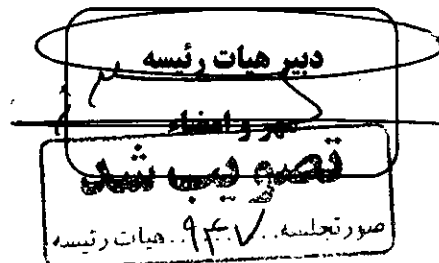 دبیر هیات رئیسه
مهر و امضاء
تصویب شد
صورتجلسه هیات رئیسه